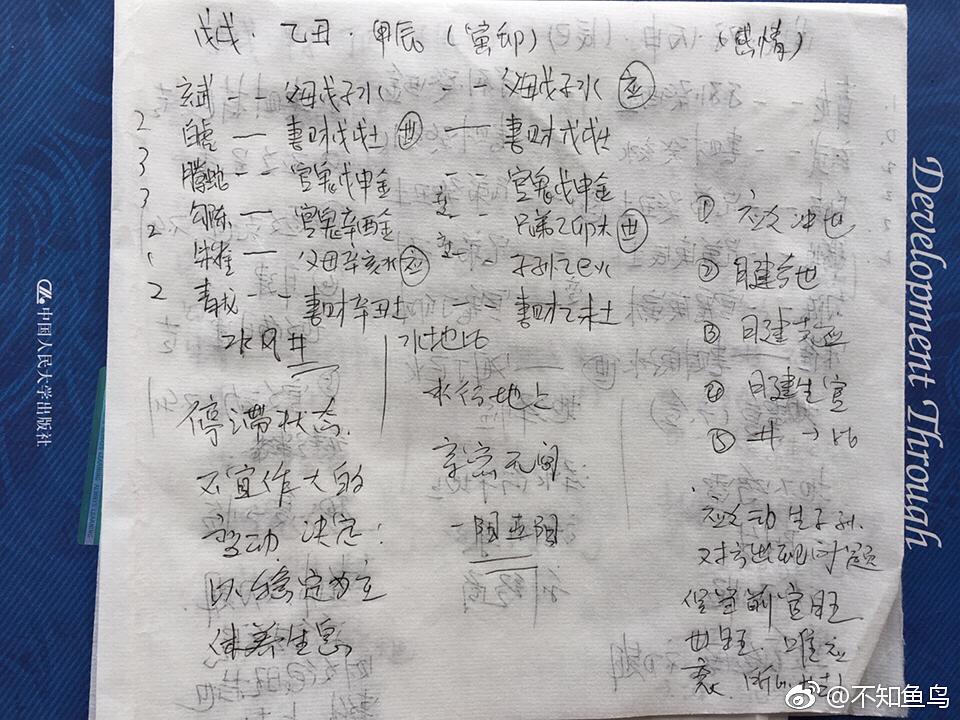 戊戌·乙丑·甲辰(寅卯) (感情)
玄武 -- 父母戊子水 -- 父母戊子水 应
2 白虎 — 妻财戊戌土 世 — 妻财戊戌土
3 腾蛇 -- 官鬼戊申金 -- 官鬼戊申金
3 勾陈 — 官鬼辛酉金 -- 兄弟乙卯木 世
2 朱雀 — 父母辛亥水 应 -- 子孙乙巳火
2 青龙 -- 妻财辛丑土 -- 妻财乙未土
水风井 水地比
停滞状态
不宜作大的
变动 决定
以稳定为主
休养生息
水行地上
亲密无间
① 应爻冲世
② 日建合世
③ 日建克应
④ 日建生官
⑤ 井→比
应爻动生子孙
对方出现问题
但当前官旺
世旺 唯应
衰
中国人民大学出版社
Development Through
@不知鱼鸟